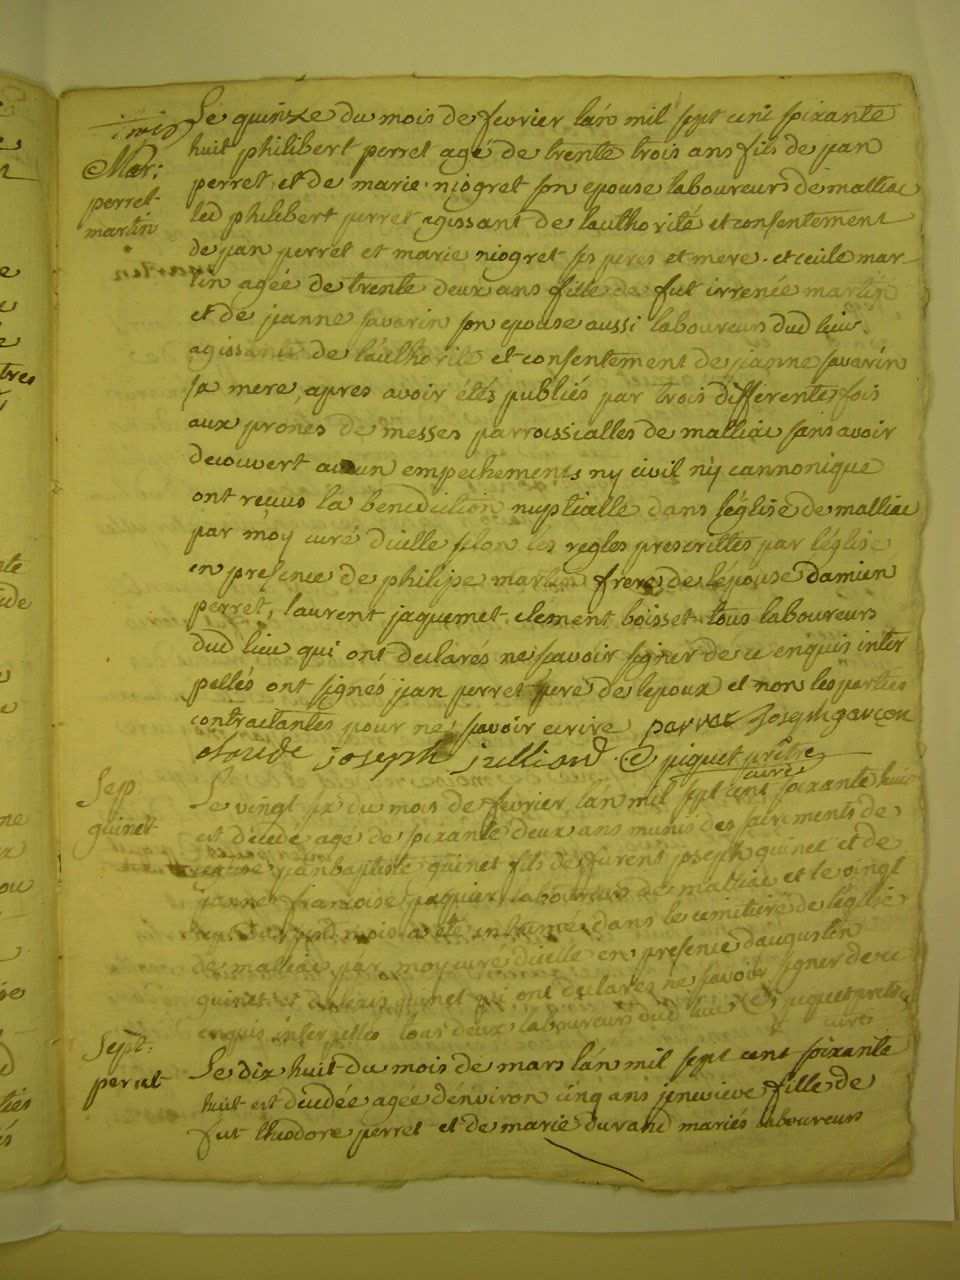 Mar:
perret
martin
Le quinze du mois de fevrier lán mil sept cent soixante
huit philibert perret agé de trente trois ans fils de jean
perret et de marie niogret son epouse laboureurs de malliac
led philibert perret agissant de laulhorité et consentement
de jean perret et marie niogret ses peres et mere. et cecile mar-
tin agée de trente deux ans fille de fut irrenée martin
et de jeanne savarin son epouse aussi laboureurs dud lieu
agissante de láulhorité et consentement de jeanne savarin
sa mere, apres avoir étés publiés par trois differentes fois
aux prônes de messes parroissialles de malliac sans avoir
decouvert aucun empechements ny civil ny cannonique
ont recus la benediction nuptialle dans léglise de malliac
par moy curé dicelle selon les regles prescrittes par léglise
en presence de philipe martin frere de lépouse damien
perret, laurent jaquemet. clement boisset tous laboureurs
dud lieu qui ont declarés ne savoir signer de ce enquis inter
pellés ont signés jean perret pere de lepoux et non les parties
contractantes pour ne savoir ecrire parret Joseph garçon
claude joseph julliard. piquet prêtre
curé
Sep
quinet
Le vingt six du mois de fevrier lán mil sept cent soixante huit
est décédé agé de soixante deux ans munis des sacrements de
jeanbaptiste quinet fils de furent joseph quinet et de
jeanne francoise paquier laboureurs de malliac et le vingt
sept dud mois a été inhumé dans le cemitiere de léglise
de malliac par moy curé dicelle en presence daugustin
quinet et quinet qui ont declarés ne savoir signer de ce
enquis interpellés tous deux laboureurs dud lieu piquet pretre
curé
Sept:
perret
Le dix huit du mois de mars lán mil sept cent soixante
huit est décédée agée dénviron cinq ans jeneviéve fille de
fut théodore perret et de marie durand mariés laboureurs